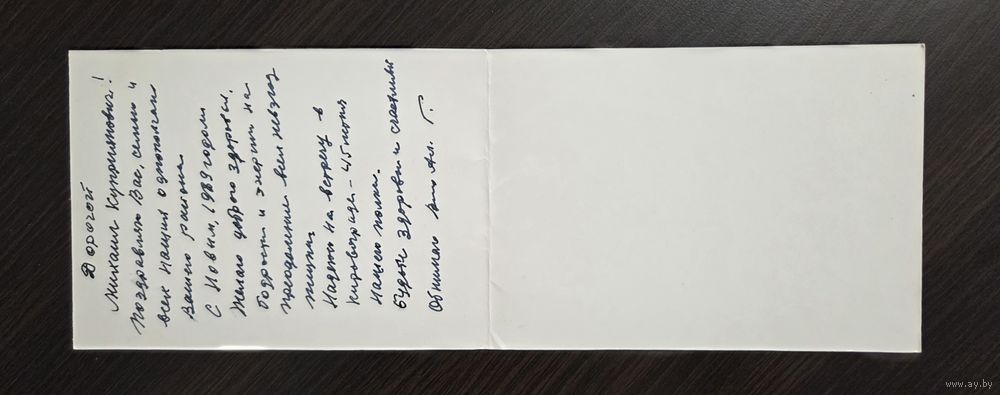 Дорогой
Михаил Куприянович!
Поздравляю Вас, семью и
всех наших однополчан
Вашего района
С Новым, 1989 годом
Желаю доброго здоровья,
бодрости и энергии на
преодоление всех невзгод
жизни
Надеюсь на встречу в
Кировограде - 45 летия
нашего полка.
Будьте здоровы и счастливы
Обнимаю
www.ay.by